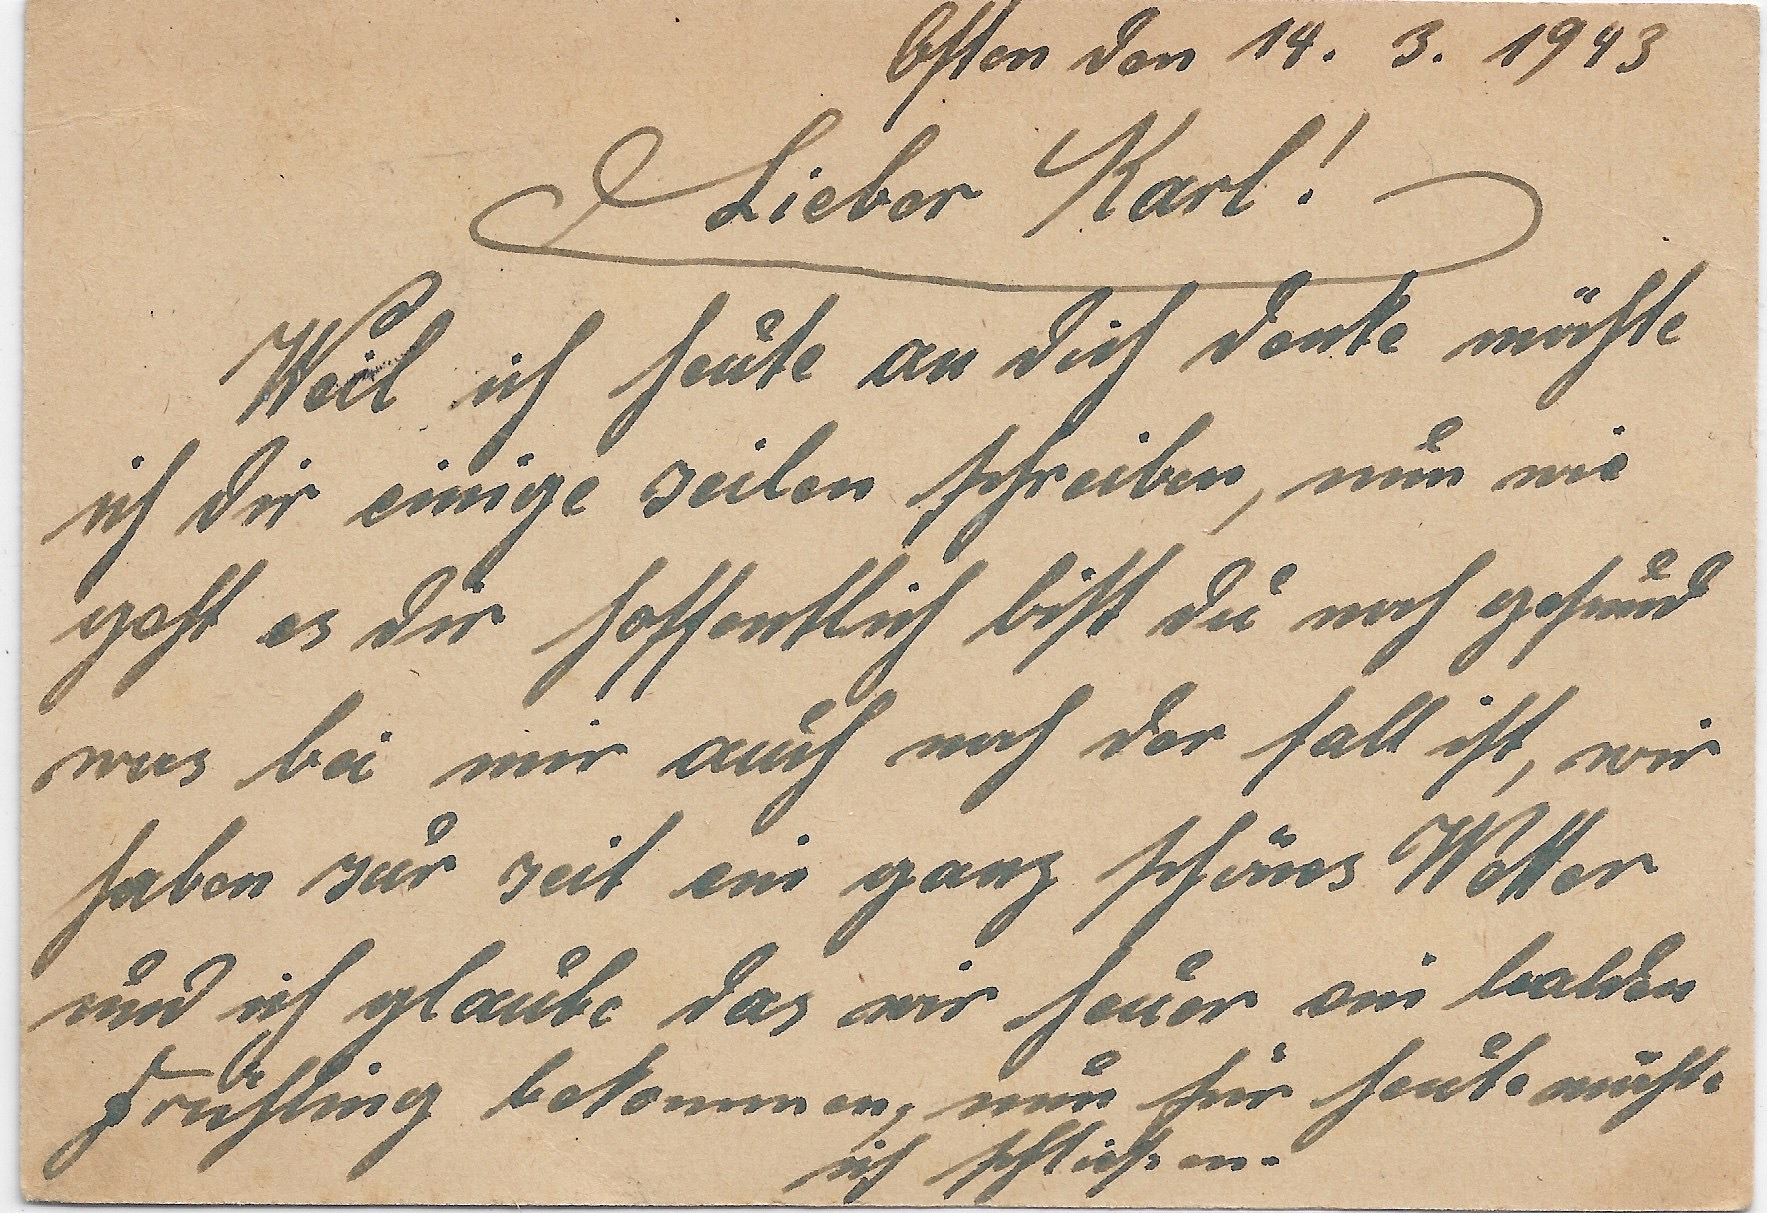 Osten den 14. 3. 1943
Lieber Karl!
Weil ich heute an dich denke möchte
ich dir einige zeilen schreiben, nun wie
geht es dir hoffentlich bist du noch gesund
was bei mir auch noch der fall ist, wir
haben zur zeit ein ganz schönes Wetter
und ich glaube das wir heuer ein balden
Frühling bekommen, nun für heute möchte
ich schließen.